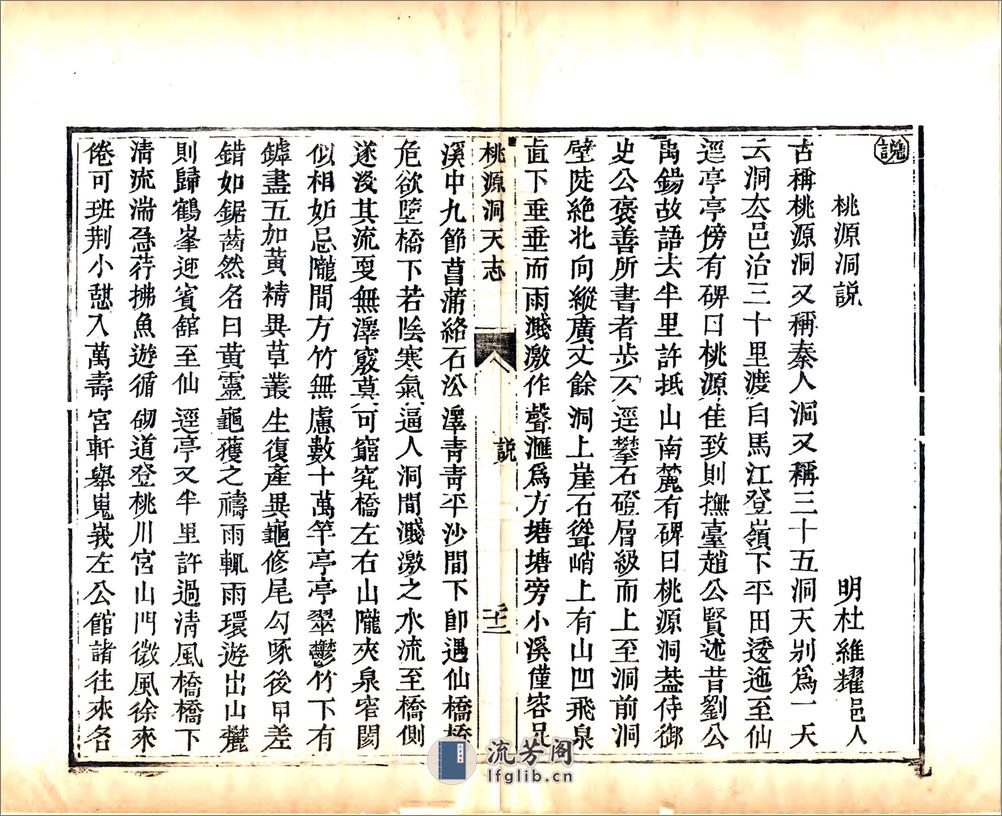 說
桃源洞說
明杜維耀邑人
古稱桃源洞又稱秦人洞又稱三十五洞天別爲一天
云洞去邑治三十里渡白馬江登嶺下平田逶迤至仙
逕亭亭傍有碑曰桃源佳致則撫臺趙公賢述昔劉公
禹錫故語去半里許抵山南麓有碑曰桃源洞葢侍御
史公褒善所書者步入逕攀石磴層級而上至洞前洞
壁陡絶北向縱廣丈餘洞上崖石聳峭上有山凹飛泉
直下垂垂而雨濺激作聲滙爲方塘塘旁小溪僅容尺
桃源洞天志
說
二十二
溪中九節菖蒲絡石沿澤青青平沙間下卽遇仙橋橋
危欲墮橋下若陰寒氣逼人洞間濺激之水流至橋側
遂沒其流更無澤竅莫可窺究橋左右山隴夾泉窄闊
似相妬忌隴間方竹無慮數十萬竿亭亭翠鬱竹下有
罅盡五加黄精異草叢生復產異龜修尾勾啄後甲差
錯如鋸齒然名曰黄靈龜獲之禱雨輒雨環遊出山麓
則歸鶴峯迎賓館至仙逕亭又半里許過清風橋橋下
清流湍急荇拂魚遊循砌道登桃川宮山門微風徐來
倦可班荆小憇入萬壽宮軒舉嵬峩左公館諸往來各
流芳阁
lfglib.cn